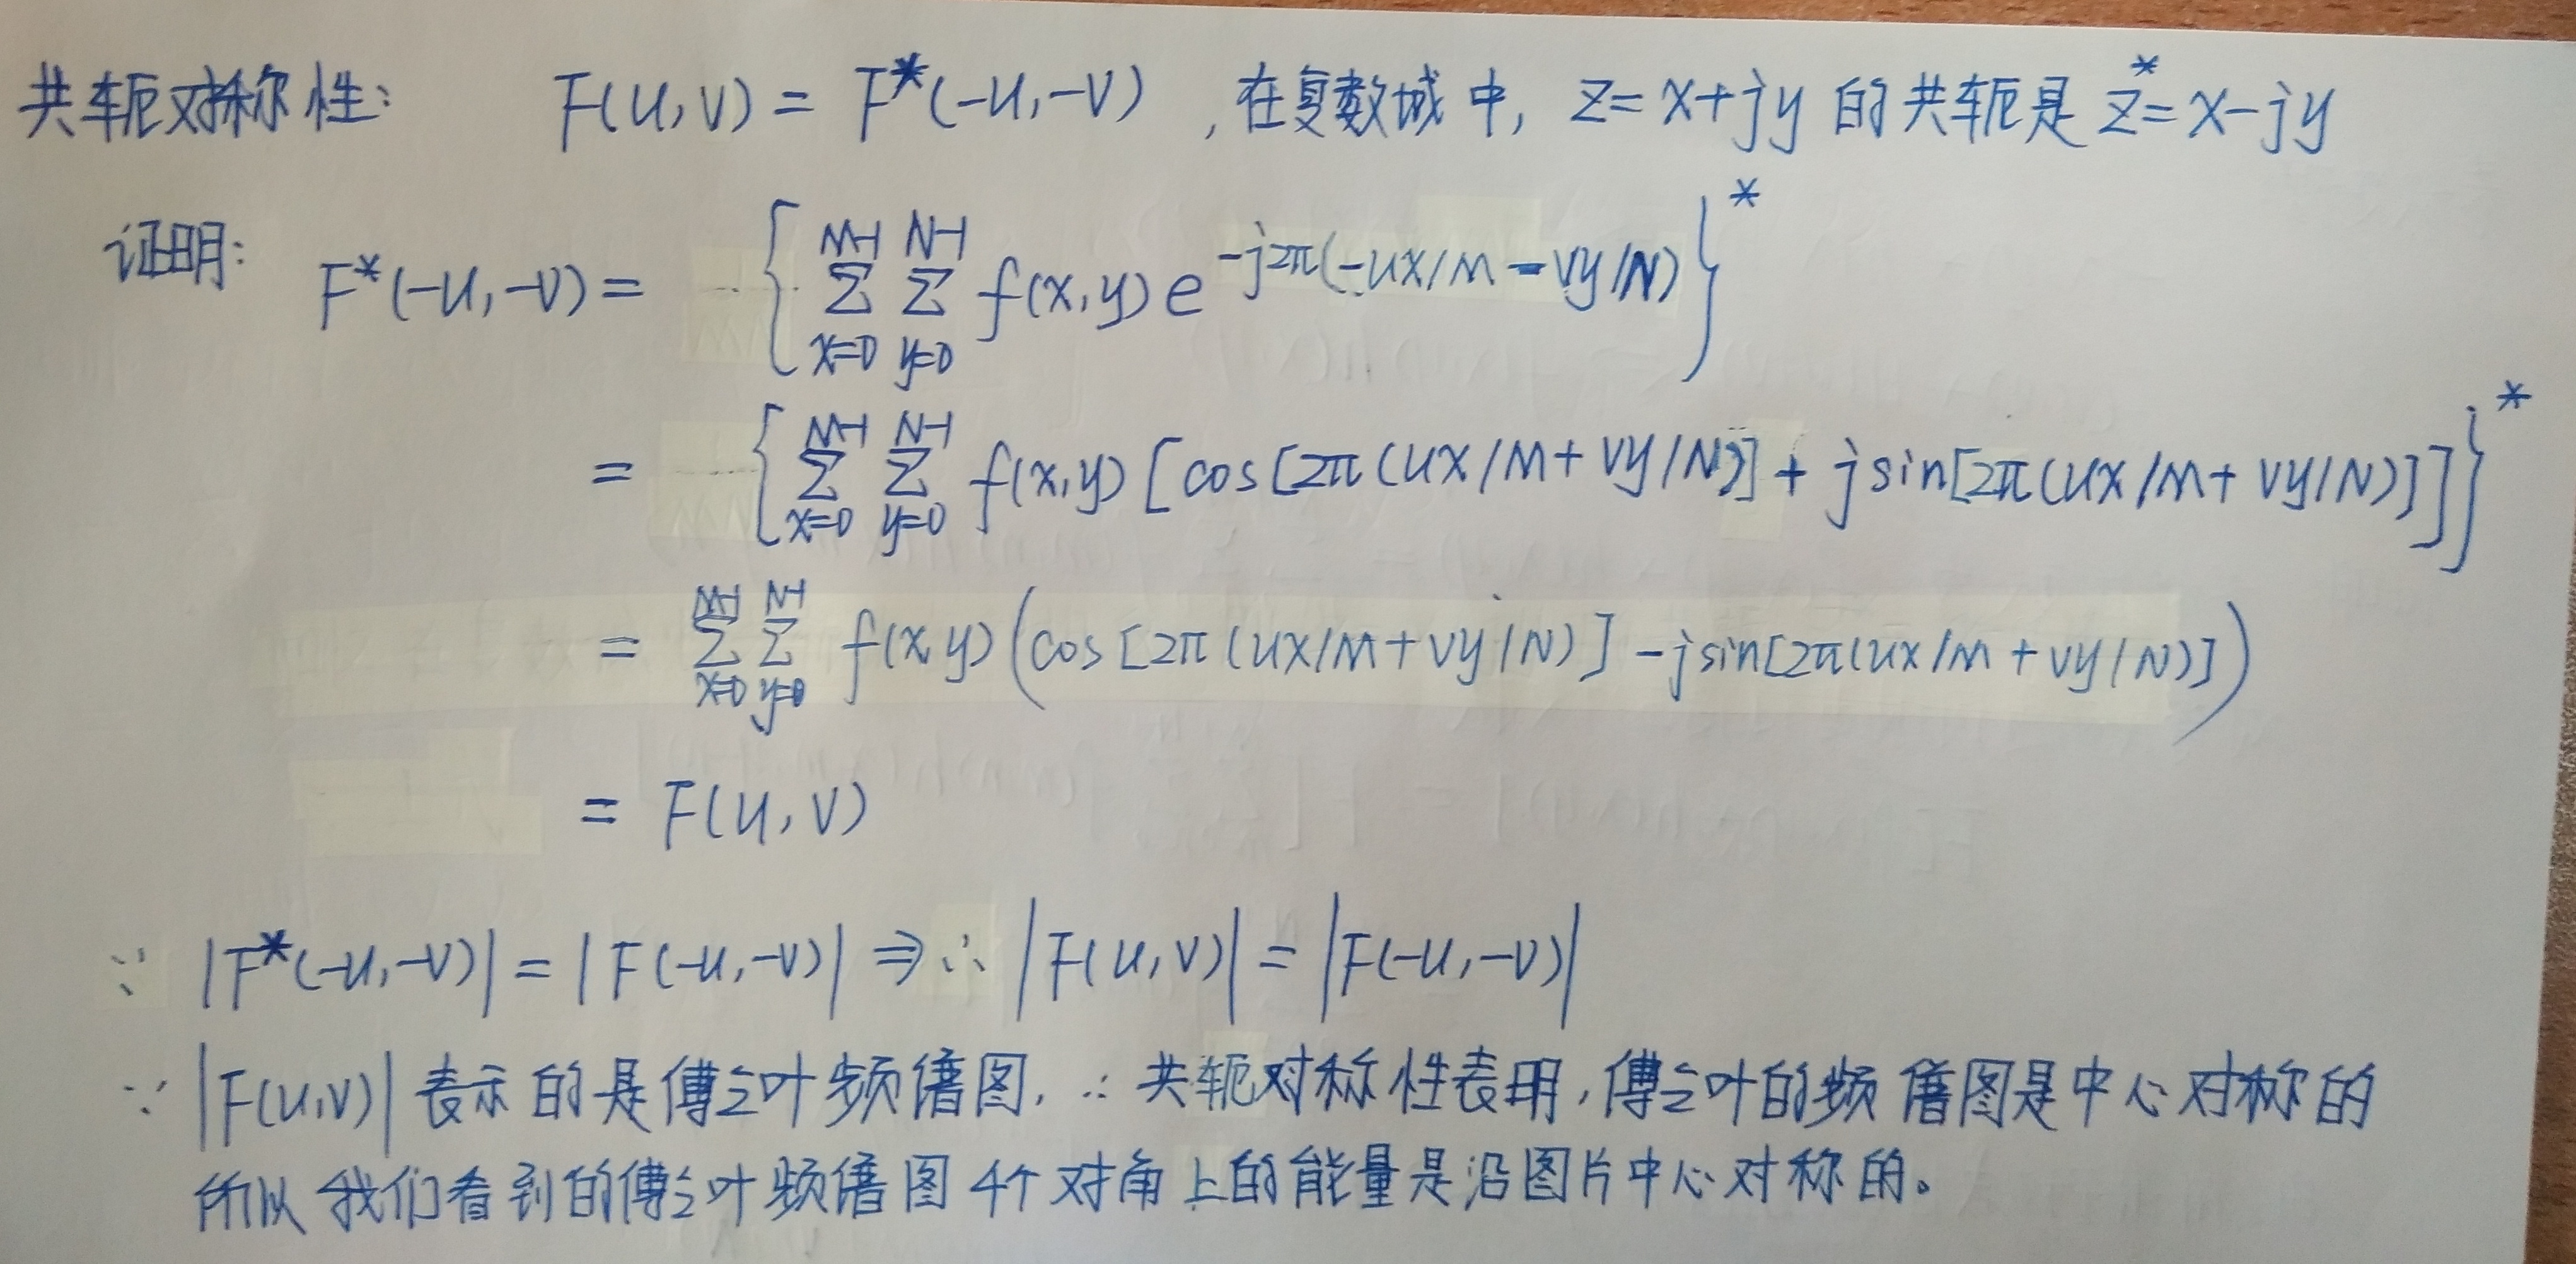 共轭对称性: F(u,v) = F*(-u,-v) ,在复数域中, z=x+jy 的共轭是 z*=x-jy
证明: F*(-u,-v) = { Σ_{x=0}^{M-1} Σ_{y=0}^{N-1} f(x,y) e^{-j2π(-ux/M-vy/N)} }*
= { Σ_{x=0}^{M-1} Σ_{y=0}^{N-1} f(x,y) [cos[2π(ux/M+vy/N)] + jsin[2π(ux/M+vy/N)]] }*
= Σ_{x=0}^{M-1} Σ_{y=0}^{N-1} f(x,y) (cos[2π(ux/M+vy/N)] -jsin[2π(ux/M+vy/N)])
= F(u,v)
∵ |F*(-u,-v)| = |F(-u,-v)| ⇒ ∴ |F(u,v)| = |F(-u,-v)|
∵ |F(u,v)| 表示的是傅立叶频谱图, ∴ 共轭对称性表明,傅立叶的频谱图是中心对称的
所以我们看到的傅立叶频谱图4个对角上的能量是沿图片中心对称的。